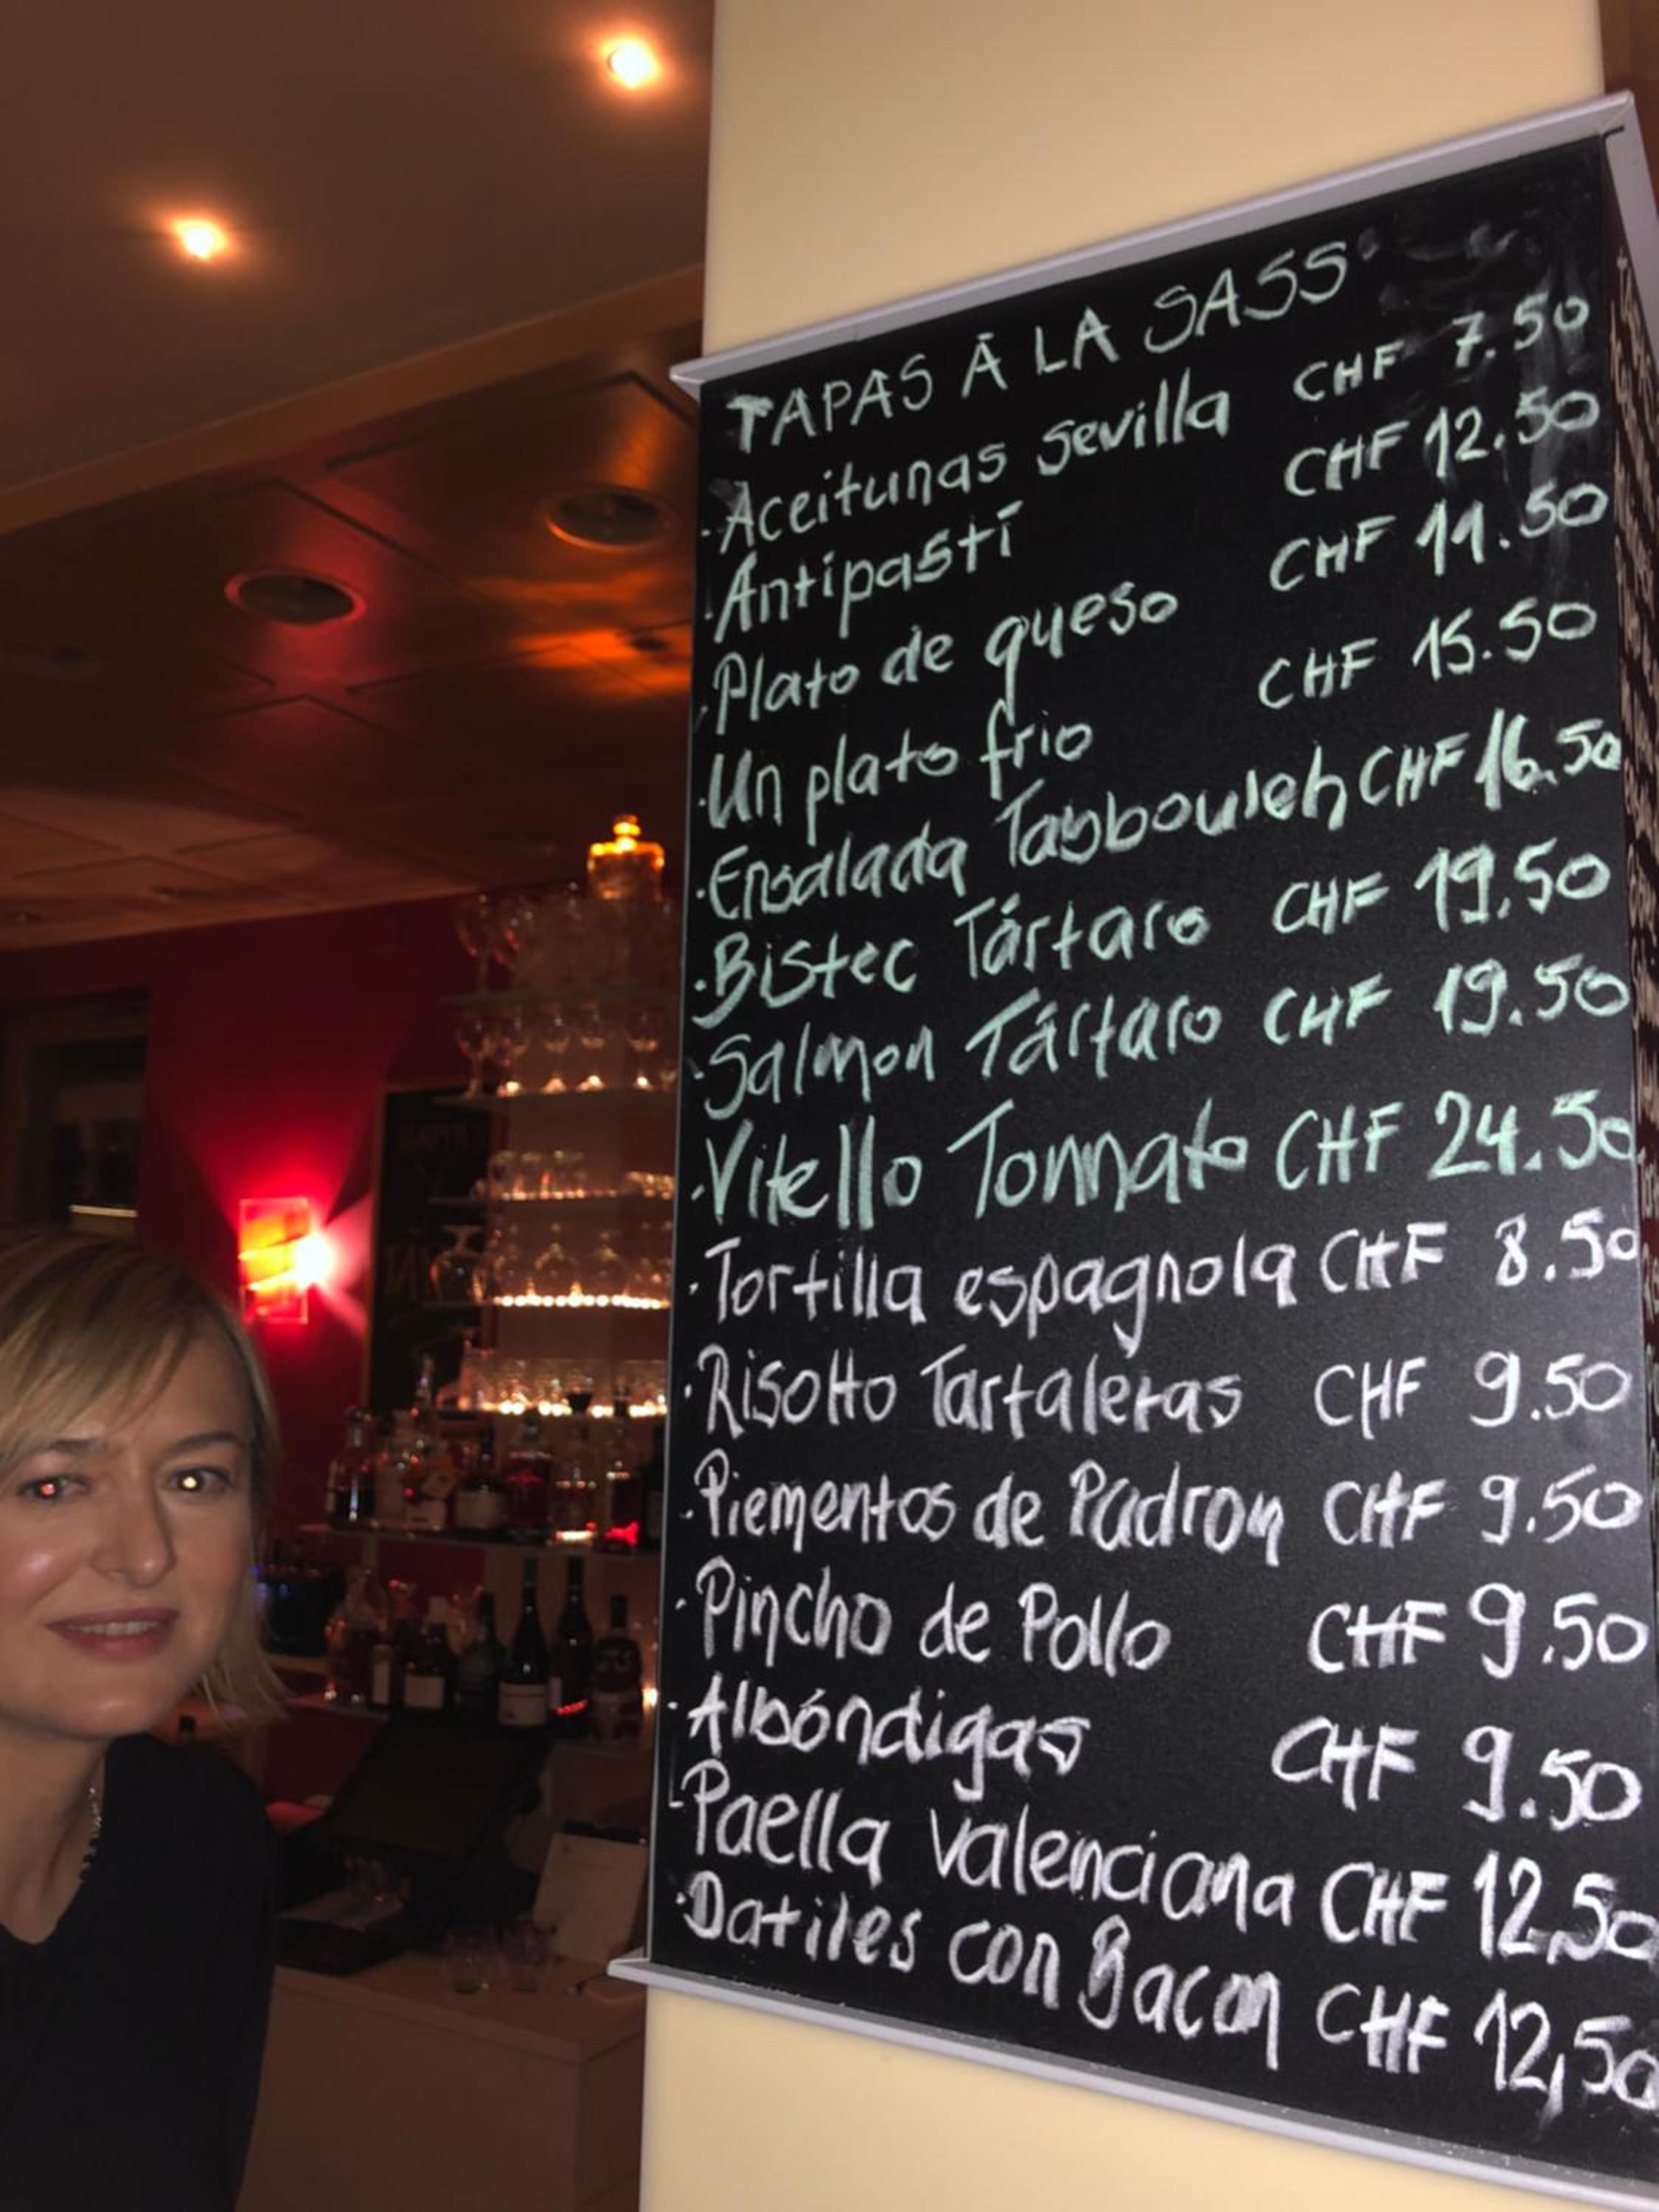 TAPAS À LA SASS
·Aceitunas sevilla CHF 7.50
·Antipasti CHF 12.50
·Plato de queso CHF 11.50
·Un plato frio CHF 15.50
·Ensalada Taybouleh CHF 16.50
·Bistec Tártaro CHF 19.50
·Salmon Tártaro CHF 19.50
·Vitello Tonnato CHF 24.50
·Tortilla espagnola CHF 8.50
·Risotto Tartaletas CHF 9.50
·Piementos de Padron CHF 9.50
·Pincho de Pollo CHF 9.50
·Albóndigas CHF 9.50
·Paella valenciana CHF 12,50
·Datiles con Bacon CHF 12,50